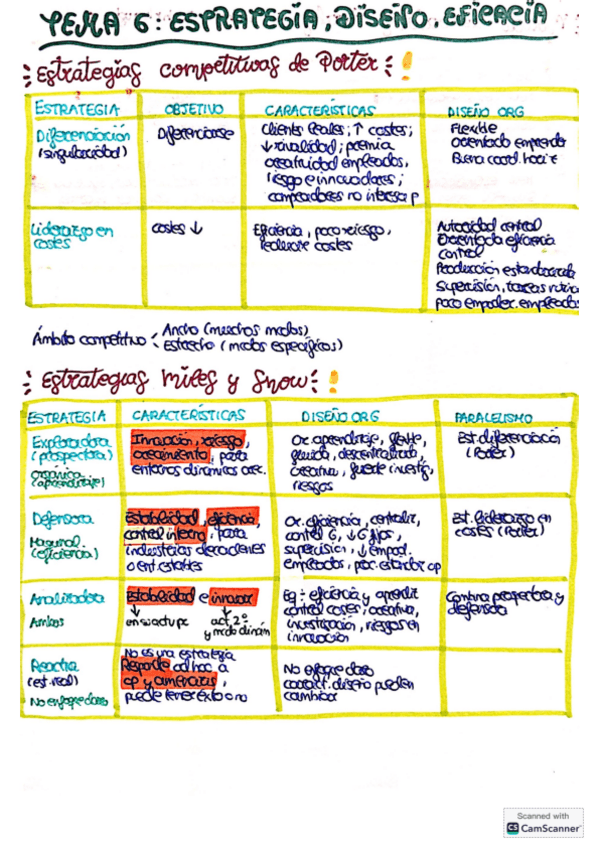 TEMA 6: ESTRATEGIA, DISEÑO, EFICACIA
Estrategias competitivas de Porter:
ESTRATEGIA
OBJETIVO
CARACTERÍSTICAS
DISEÑO ORG
Diferenciación
(singularidad)
Diferenciarse
Clientes leales; ↑ costes;
↓ rivalidad; premia
creatividad empleados,
riesgo e innovadores;
compradores no interesa p
Flexible
Orientado
Buena coord. horiz
Liderazgo en
costes
costes ↓
Eficiencia, poco riesgo,
reducir costes
Autoridad central
Orientada eficiencia
control
Producción estandarizada
Supervisión, tareas rutina
poco empoder. empleados
Ámbito competitivo
Ancho (muchos mdos)
Estrecho (mdos específicos)
Estrategias Miles y Snow:
ESTRATEGIA
CARACTERÍSTICAS
DISEÑO ORG
PARALELISMO
Exploradora
(prospectora)
orgánica
(aprendizaje)
Innovación, riesgo,
crecimiento, para
entornos dinámicos crec.
Or. aprendizaje, flexible,
fluida, descentralizada,
creativa, fuerte investig,
riesgos
Est. diferenciación
(Porter)
Defensora
(eficiencia)
Estabilidad, eficiencia,
control interno, para
industrias
o ent. estables
Or. eficiencia, centraliz,
control
supervisión, ↓ empod.
empleados, proc. estandar
Est. liderazgo en
costes (Porter)
Analizadora
Ambos
Estabilidad e innovar
en su act ppe
act. 2º
y mdo dinám
Eq: eficiencia y aprendiz
control costes; creativa,
investigación, riesgos en
innovación
Combina prospectora y
defensora
Reactiva
(est. real)
No enfoque claro
No es una estrategia
Responde ad hoc a
op y amenazas,
puede tener éxito o no
No enfoque claro
caract. diseño pueden
cambiar
Scanned with
CS CamScanner